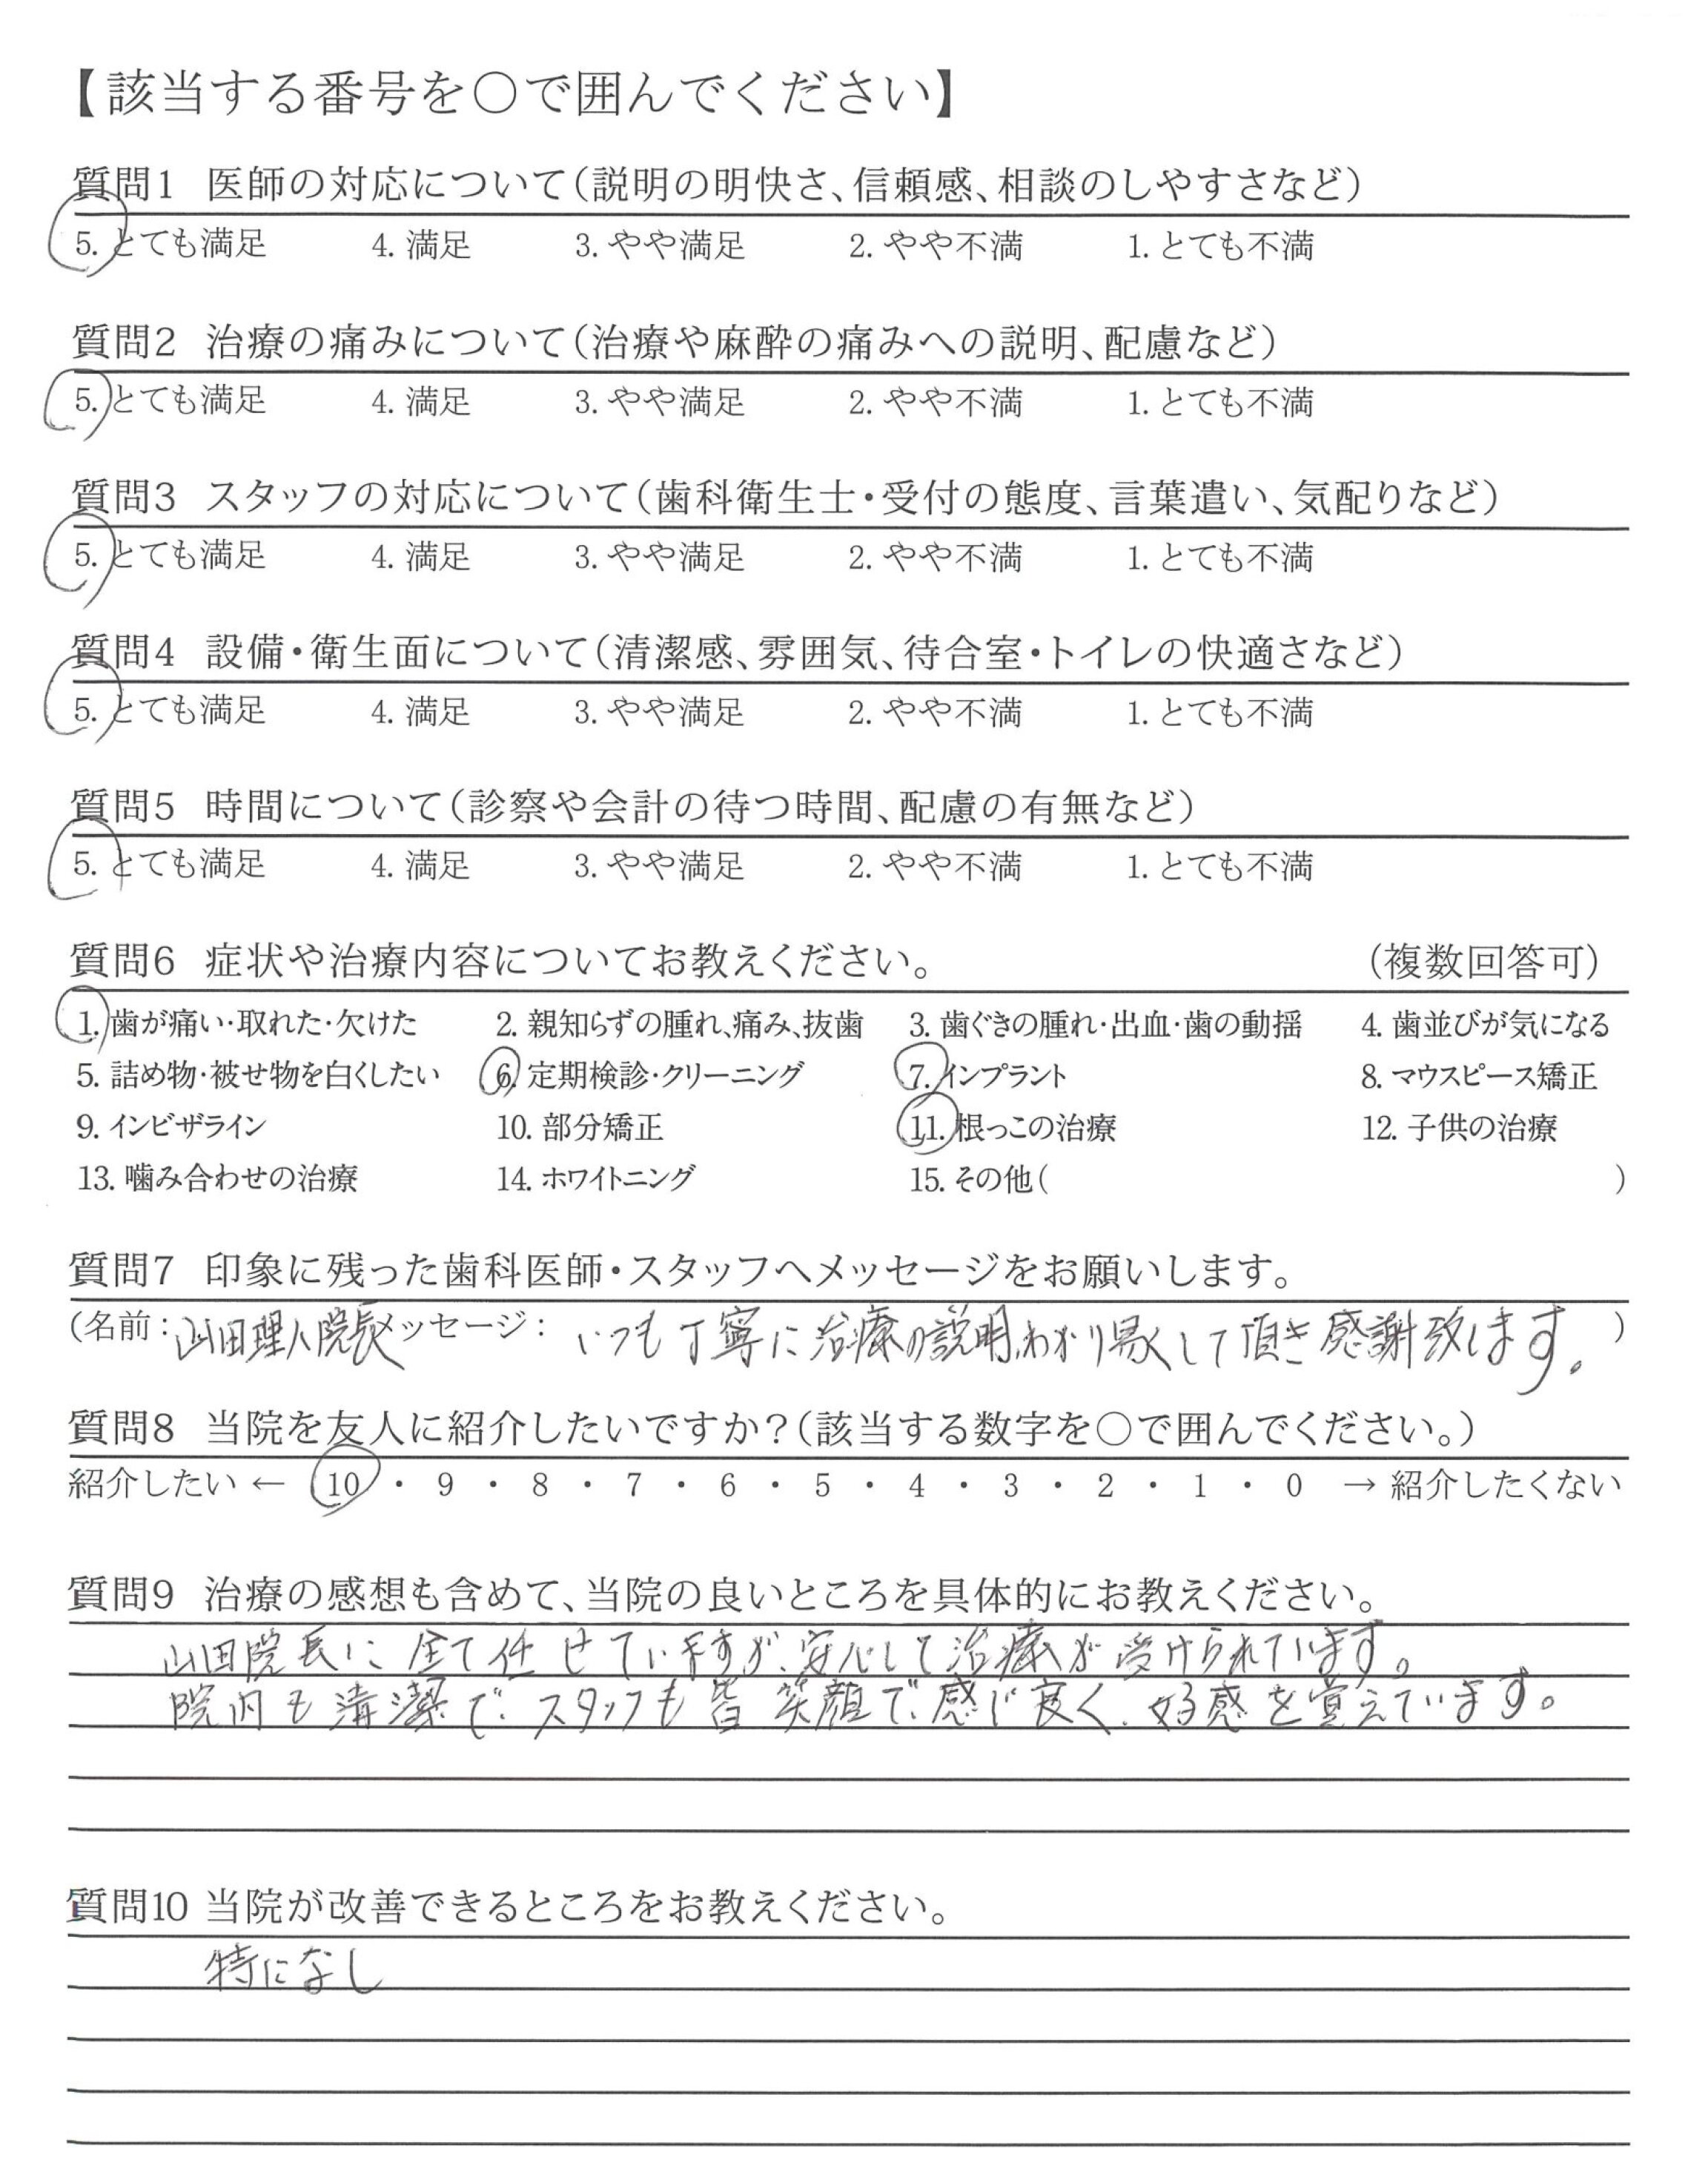 【該当する番号を○で囲んでください】
質問1 医師の対応について(説明の明快さ、信頼感、相談のしやすさなど)
5. とても満足 4. 満足 3. やや満足 2. やや不満 1. とても不満
質問2 治療の痛みについて(治療や麻酔の痛みへの説明、配慮など)
5. とても満足 4. 満足 3. やや満足 2. やや不満 1. とても不満
質問3 スタッフの対応について(歯科衛生士・受付の態度、言葉遣い、気配りなど)
5. とても満足 4. 満足 3. やや満足 2. やや不満 1. とても不満
質問4 設備・衛生面について(清潔感、雰囲気、待合室・トイレの快適さなど)
5. とても満足 4. 満足 3. やや満足 2. やや不満 1. とても不満
質問5 時間について(診察や会計の待つ時間、配慮の有無など)
5. とても満足 4. 満足 3. やや満足 2. やや不満 1. とても不満
質問6 症状や治療内容についてお教えください。 (複数回答可)
1. 歯が痛い・取れた・欠けた 2. 親知らずの腫れ、痛み、抜歯 3. 歯ぐきの腫れ・出血・歯の動揺 4. 歯並びが気になる
5. 詰め物・被せ物を白くしたい 6. 定期検診・クリーニング 7. インプラント 8. マウスピース矯正
9. インビザライン 10. 部分矯正 11. 根っこの治療 12. 子供の治療
13. 噛み合わせの治療 14. ホワイトニング 15. その他( )
質問7 印象に残った歯科医師・スタッフへメッセージをお願いします。
(名前:山田理人院長 メッセージ: いつも丁寧に治療の説明、わかり易くして頂き感謝致します。)
質問8 当院を友人に紹介したいですか?(該当する数字を○で囲んでください。)
紹介したい ← 10 ・ 9 ・ 8 ・ 7 ・ 6 ・ 5 ・ 4 ・ 3 ・ 2 ・ 1 ・ 0 → 紹介したくない
質問9 治療の感想も含めて、当院の良いところを具体的にお教えください。
山田院長に全て任せていますが、安心して治療が受けられています。
院内も清潔で、スタッフも皆笑顔で、感じ良く、好感を覚えています。
質問10 当院が改善できるところをお教えください。
特になし